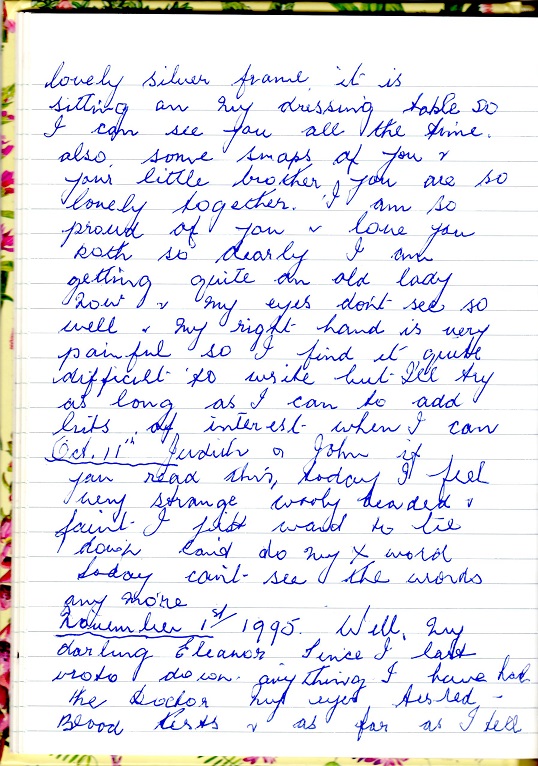 lovely silver frame, it is
sitting on my dressing table so
I can see you all the time.
also, some snaps of you &
your little brother, you are so
lovely together. I am so
proud of you & love you
both so dearly I am
getting quite an old lady
now & my eyes don't see so
well & my right hand is very
painful so I find it quite
difficult to write but I'll try
as long as I can to add
bits of interest when I can
Oct. 11th Judith or John if
you read this, today I feel
very strange wooly headed &
faint I just want to lie
down can't do my X word
today can't see the words
any more
November 1st/1995. Well, my
darling Eleanor Since I last
wrote down anything I have had
the Doctor my eyes tested -
Blood tests & as far as I tell